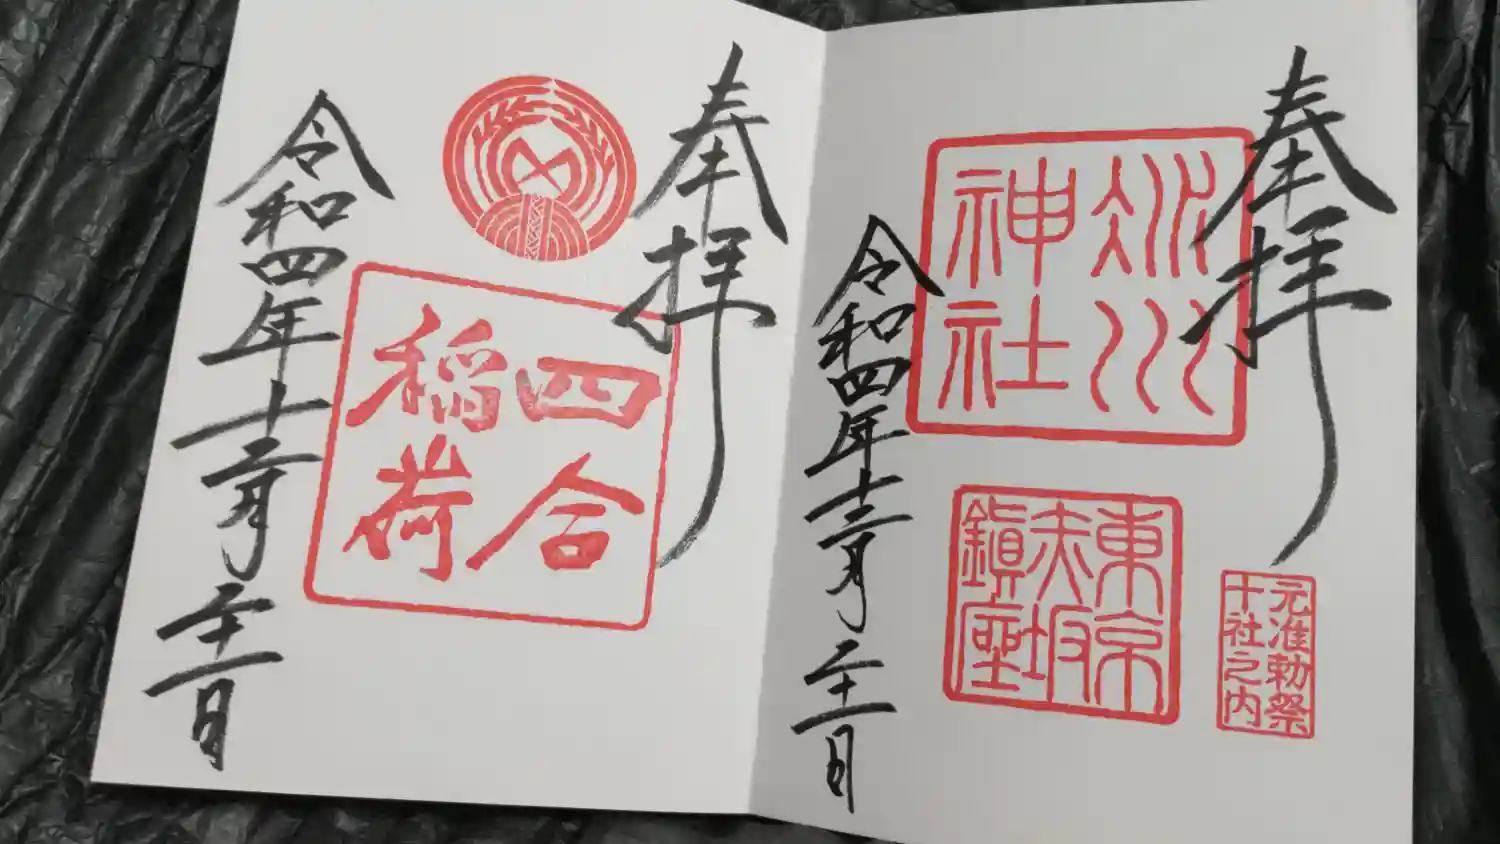 奉拝
氷川
神社
東京
赤坂
鎭座
元准勅祭
十社之内
令和四年十二月二十一日
奉拝
四合
稲荷
令和四年十二月二十一日